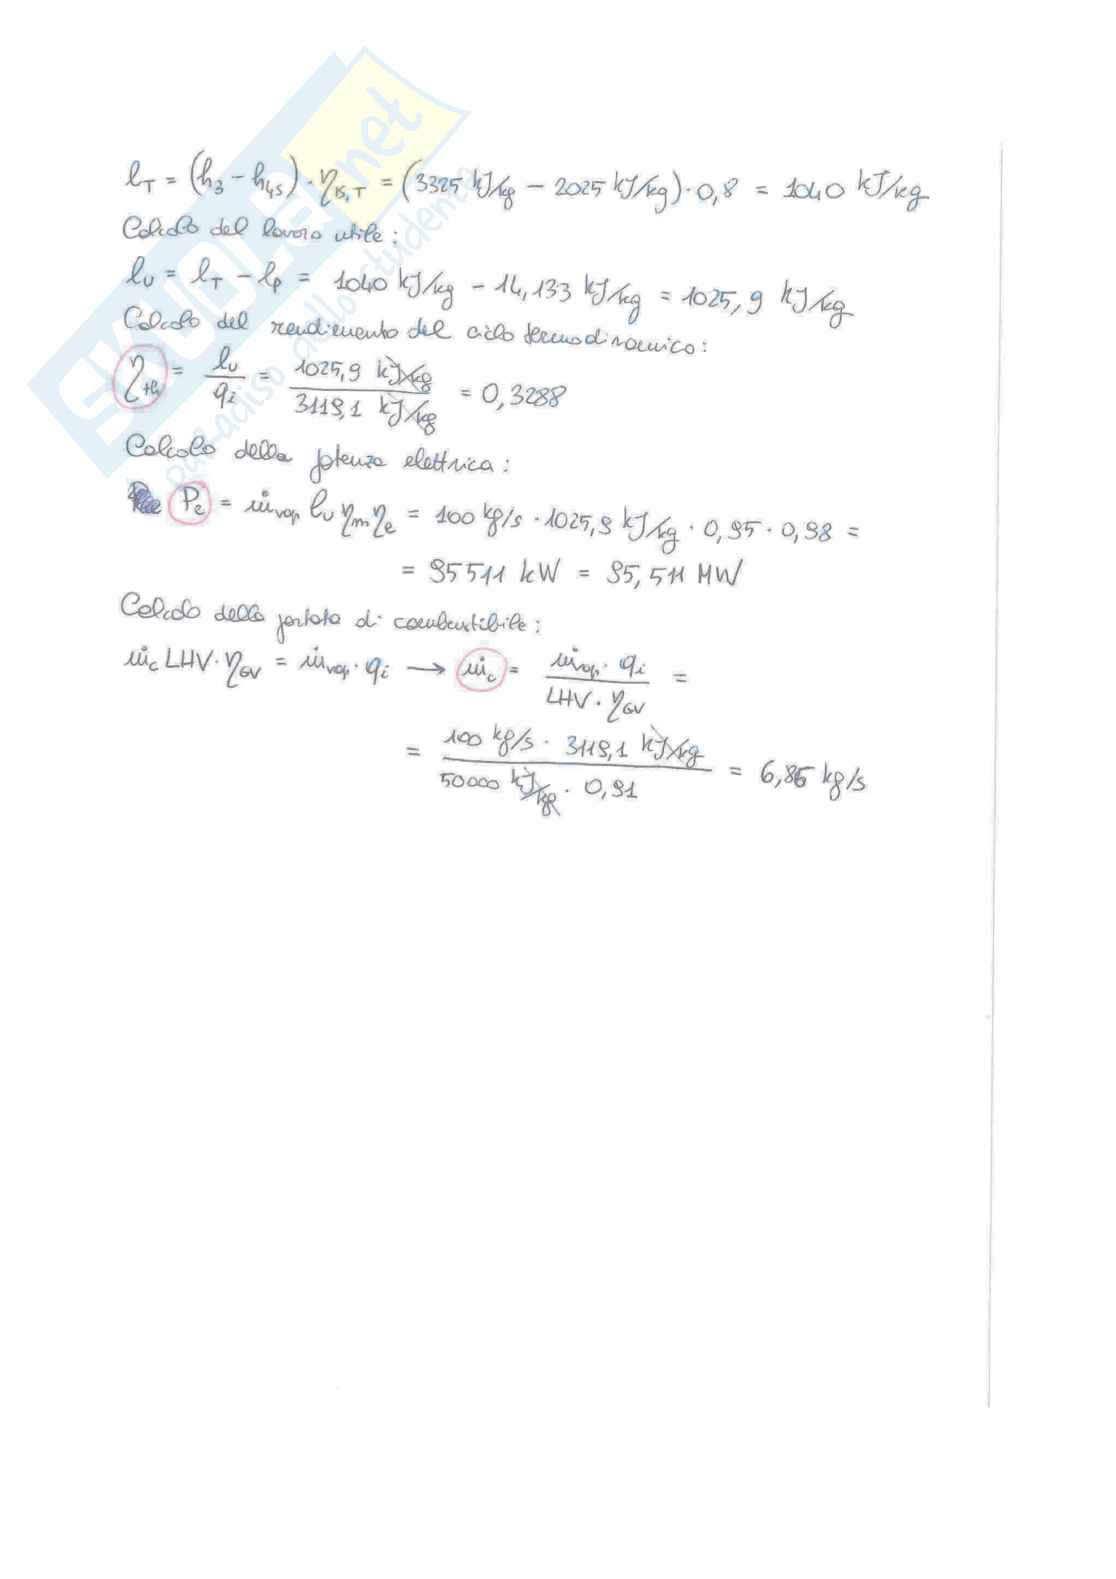 l_T = (h_3 - h_4s) · η_is,T = (3325 kJ/kg - 2025 kJ/kg) · 0,8 = 1040 kJ/kg
Calcolo del lavoro utile:
l_U = l_T - l_P = 1040 kJ/kg - 14,133 kJ/kg = 1025,9 kJ/kg
Calcolo del rendimento del ciclo termodinamico:
η_th = l_U / q_i = 1025,9 kJ/kg / 3119,1 kJ/kg = 0,3288
Calcolo della potenza elettrica:
P_e = ṁ_vap l_U η_m η_e = 100 kg/s · 1025,9 kJ/kg · 0,95 · 0,98 =
= 95511 kW = 95,511 MW
Calcolo della portata di combustibile:
ṁ_c LHV · η_GV = ṁ_vap · q_i → ṁ_c = ṁ_vap · q_i / LHV · η_GV =
= 100 kg/s · 3119,1 kJ/kg / 50000 kJ/kg · 0,91 = 6,85 kg/s
SKUOLA.net
paradiso dello studente